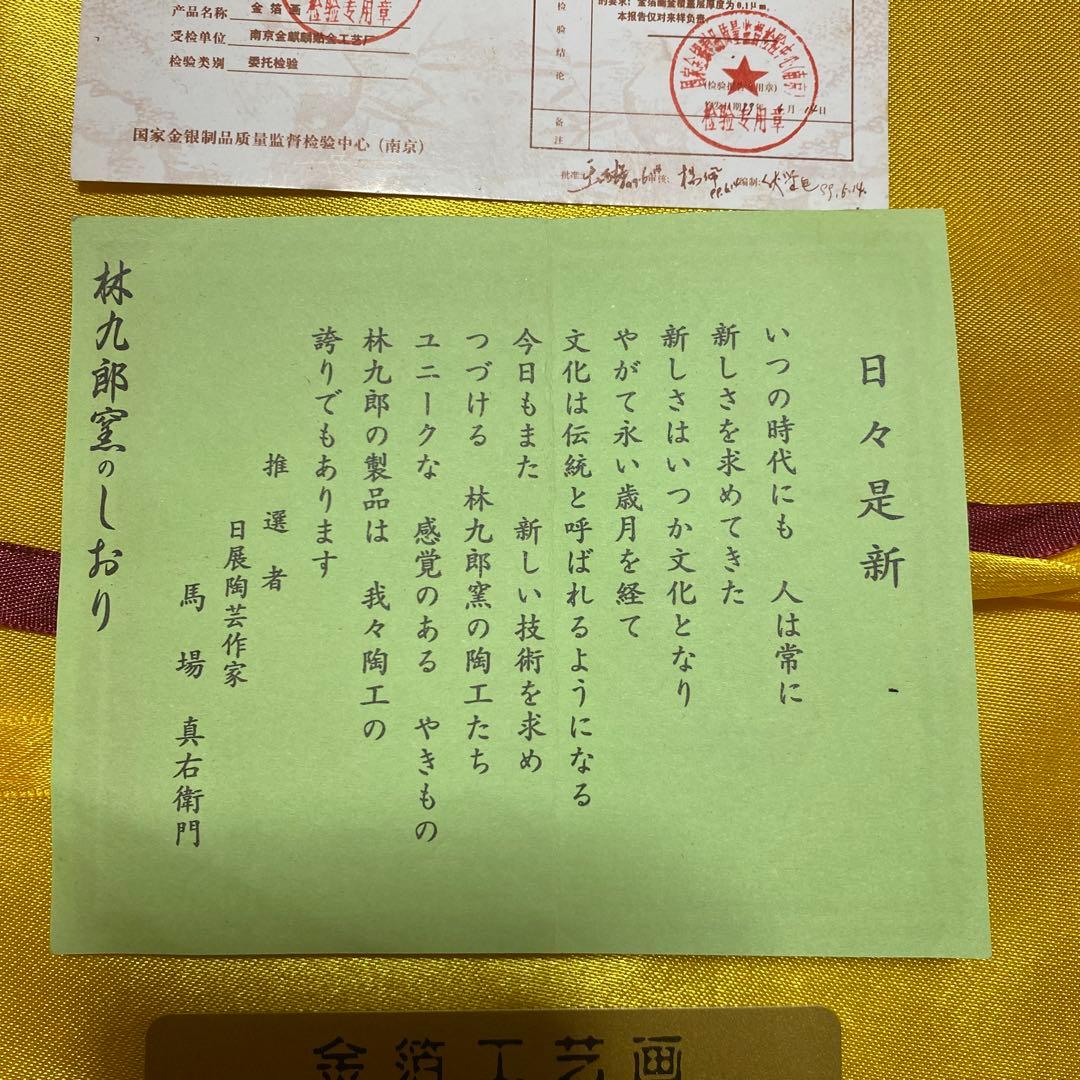 产品名称 金箔画
受检单位 南京金麒麟贴金工艺厂
检验类别 委托检验
国家金银制品质量监督检验中心（南京）
检验专用章
检验结论
金箔画金覆盖层厚度为0.1μm。
本报告仅对来样负责。
国家金银制品质量监督检验中心(南京)
检验专用章
备注
批准：
审核：
编制：
99.6.14.
日々是新
いつの時代にも 人は常に
新しさを求めてきた
新しさはいつか文化となり
やがて永い歳月を経て
文化は伝統と呼ばれるようになる
今日もまた 新しい技術を求め
つづける 林九郎窯の陶工たち
ユニークな 感覚のある やきもの
林九郎の製品は 我々陶工の
誇りでもあります
推選者
日展陶芸作家
馬場 真右衛門
林九郎窯のしおり
金箔工艺画